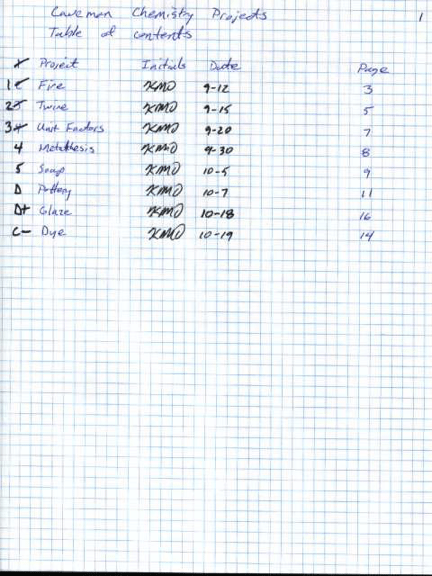 Caveman Chemistry Projects 1
Table of contents
Project Initials Date Page
1 Fire KMD 9-12 3
2 Twine KMD 9-15 5
3 Unit Factors KMD 9-20 7
4 Metathesis KMD 9-30 8
5 Soap KMD 10-5 9
D Pottery KMD 10-7 11
D+ Glaze KMD 10-18 16
C- Dye KMD 10-19 14